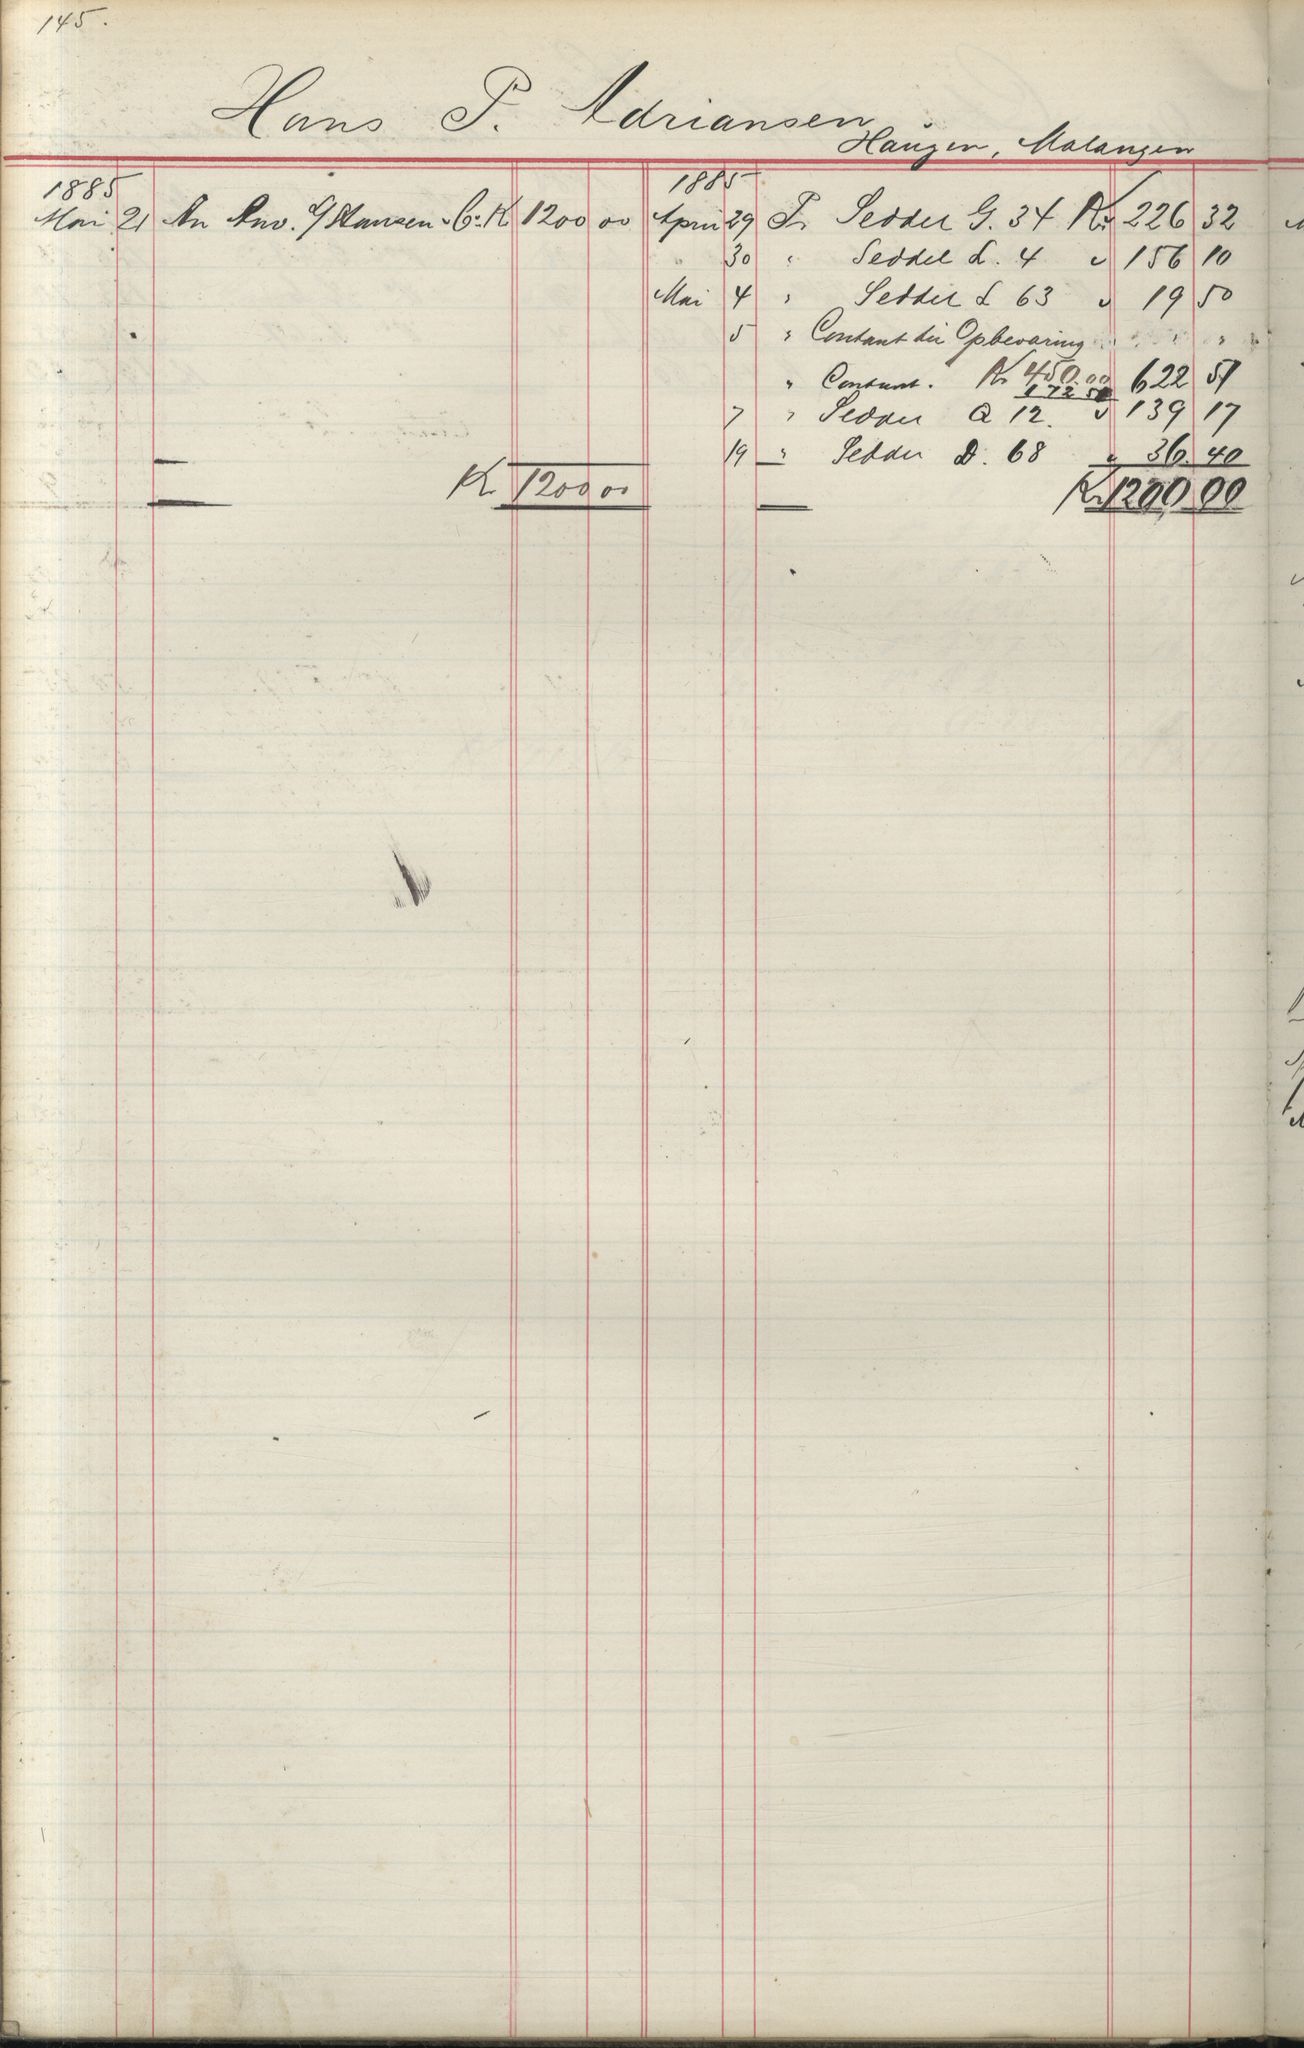 145.
Hans P. Adriansen
Haugen, Malangen
1885
Mai 21 An Anv. Hansen & Co. Kr 1200 00
Kr 1200 00
1885
April 29 Pr Seddel G. 34 Kr 226 32
" 30 " Seddel L. 4 " 156 10
Mai 4 " Seddel L 63 " 19 50
5 " Contant til Opbevaring " "
" Contant. Kr 450.00 622 51
172 51
7 " Seddel Q 12. " 139 17
19 " Seddel D. 68 " 36. 40
Kr 1200 00